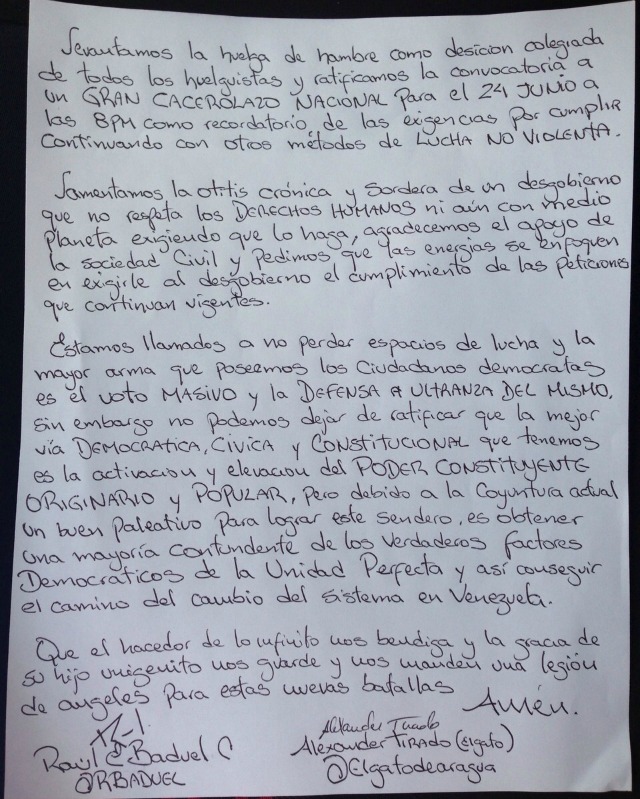 Levantamos la huelga de hambre como desicion colegiada
de todos los huelguistas y ratificamos la convocatoria a
un GRAN CACEROLAZO NACIONAL para el 24 JUNIO a
las 8PM como recordatorio de las exigencias por cumplir
continuando con otros métodos de LUCHA NO VIOLENTA.
Lamentamos la otitis crónica y sordera de un desgobierno
que no respeta los DERECHOS HUMANOS ni aún con medio
planeta exigiendo que lo haga, agradecemos el apoyo de
la sociedad Civil y Pedimos que las energias se enfoquen
en exigirle al desgobierno el cumplimiento de las Peticiones
que continuan vigentes.
Estamos llamados a no perder espacios de lucha y la
mayor arma que poseemos los Ciudadanos democratas
es el voto MASIVO y la DEFENSA A ULTRANZA DEL MISMO,
sin embargo no podemos dejar de ratificar que la mejor
vía DEMOCRATICA, CIVICA y CONSTITUCIONAL que tenemos
es la activacion y elevacion del PODER CONSTITUYENTE
ORIGINARIO y POPULAR, pero debido a la Coyuntura actual
un buen Paleativo para lograr este sendero, es obtener
una mayoría contundente de los verdaderos factores
Democráticos de la Unidad Perfecta y así conseguir
el camino del cambio del sistema en Venezuela.
Que el hacedor de lo infinito nos bendiga y la gracia de
su hijo unigenito nos guarde y nos manden una legión
de angeles para estas nuevas batallas Amén.
Raúl E Baduel C
@RBADUEL
Alexander Tirado
Alexander TIRADO (Elgato)
@Elgatodearagua